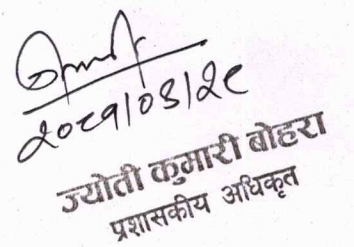 २०८१/०३/२९
ज्योती कुमारी बोहरा
प्रशासकीय अधिकृत